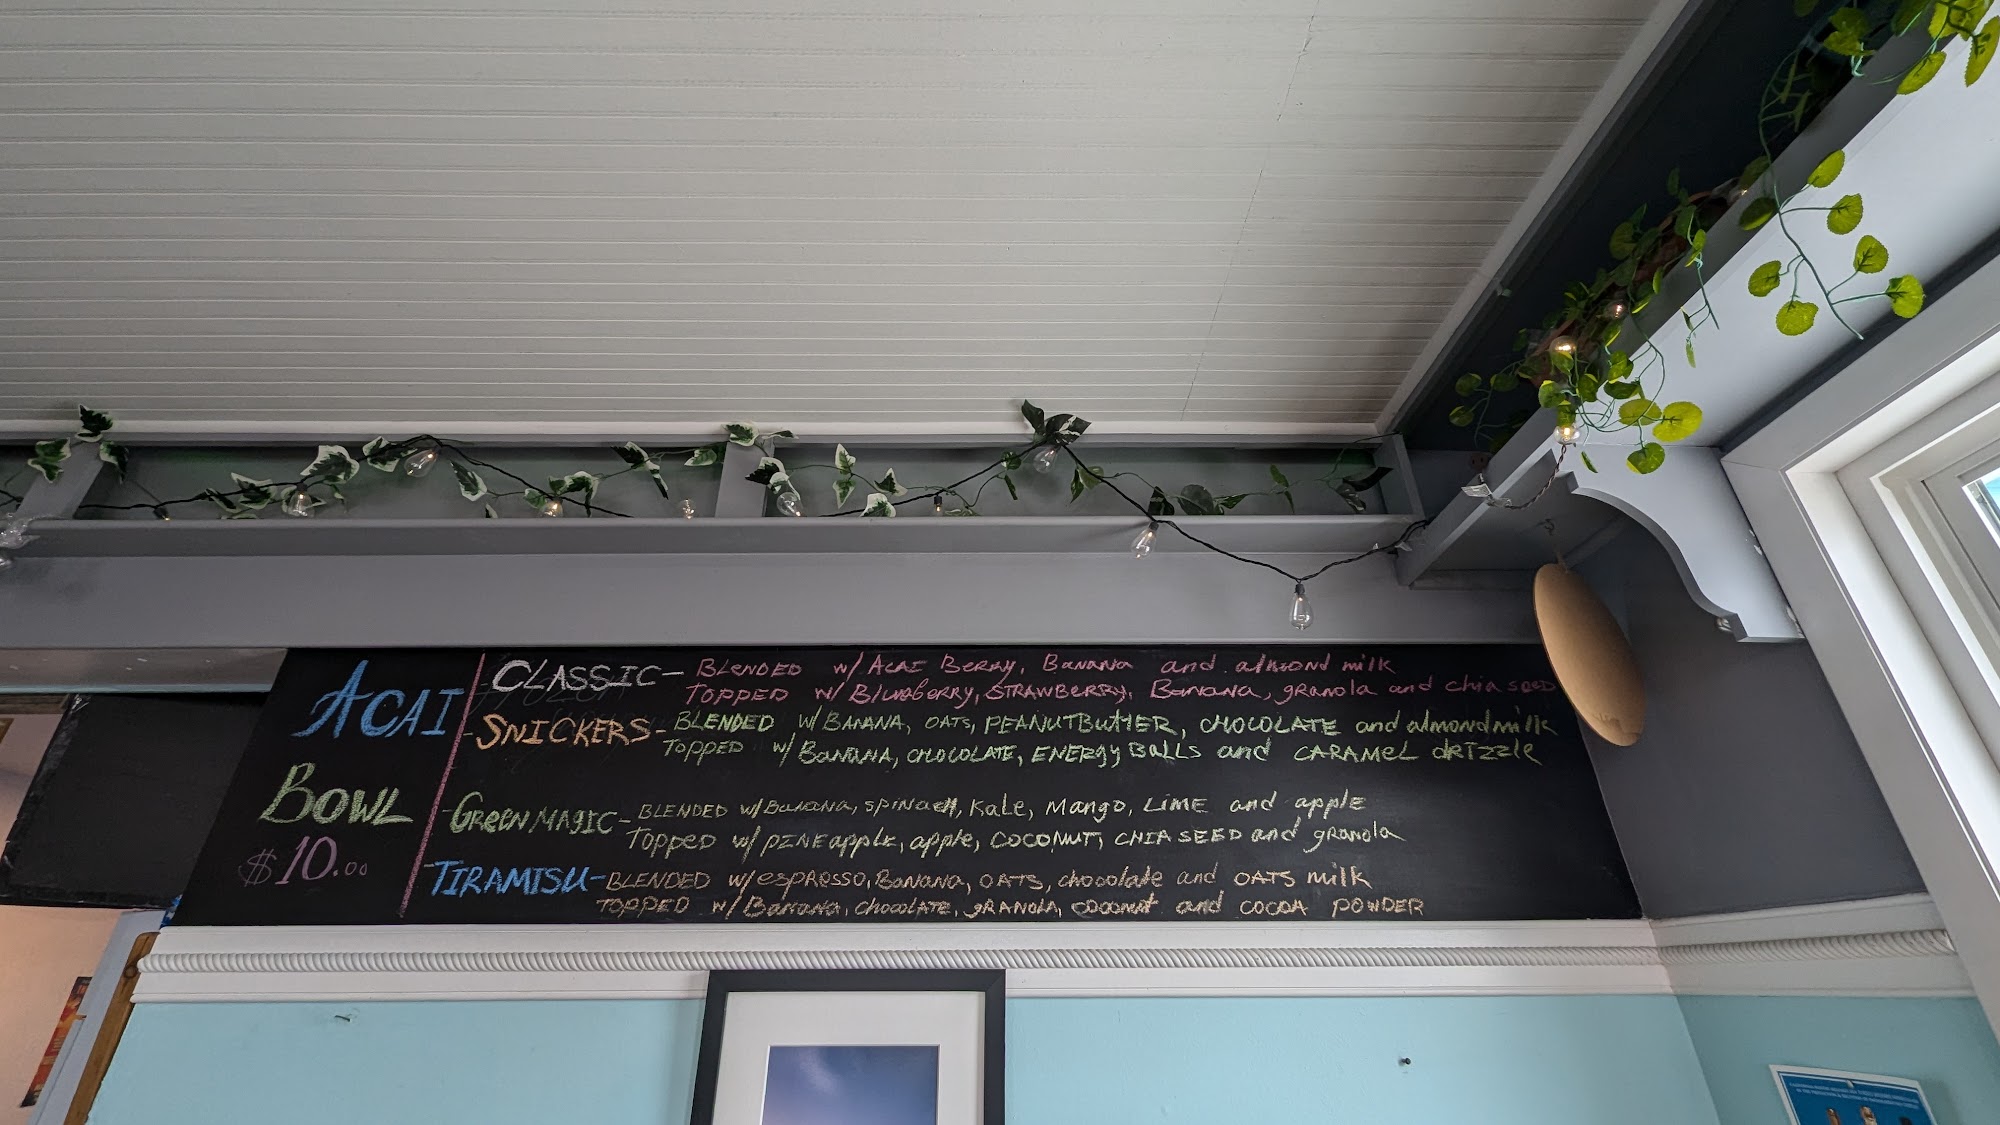 ACAI
BOWL
$10.00
CLASSIC - BLENDED W/ ACAI BERRY, BANANA and almond milk
TOPPED W/ Blueberry, STRAWBERRY, BANANA, granola and chia seed
SNICKERS - BLENDED W/ BANANA, OATS, PEANUTBUTTER, CHOCOLATE and almond milk
TOPPED W/ BANANA, CHOCOLATE, ENERGY BALLS and CARAMEL drizzle
GREEN MAGIC - BLENDED W/ BANANA, SPINACH, Kale, Mango, LIME and apple
Topped w/ PINEapple, apple, COCONUT, CHIA SEED and granola
TIRAMISU - BLENDED W/ espresso, BANANA, OATS, chocolate and OATS milk
TOPPED W/ Banana, chocolate, GRANOLA, coconut and COCOA POWDER